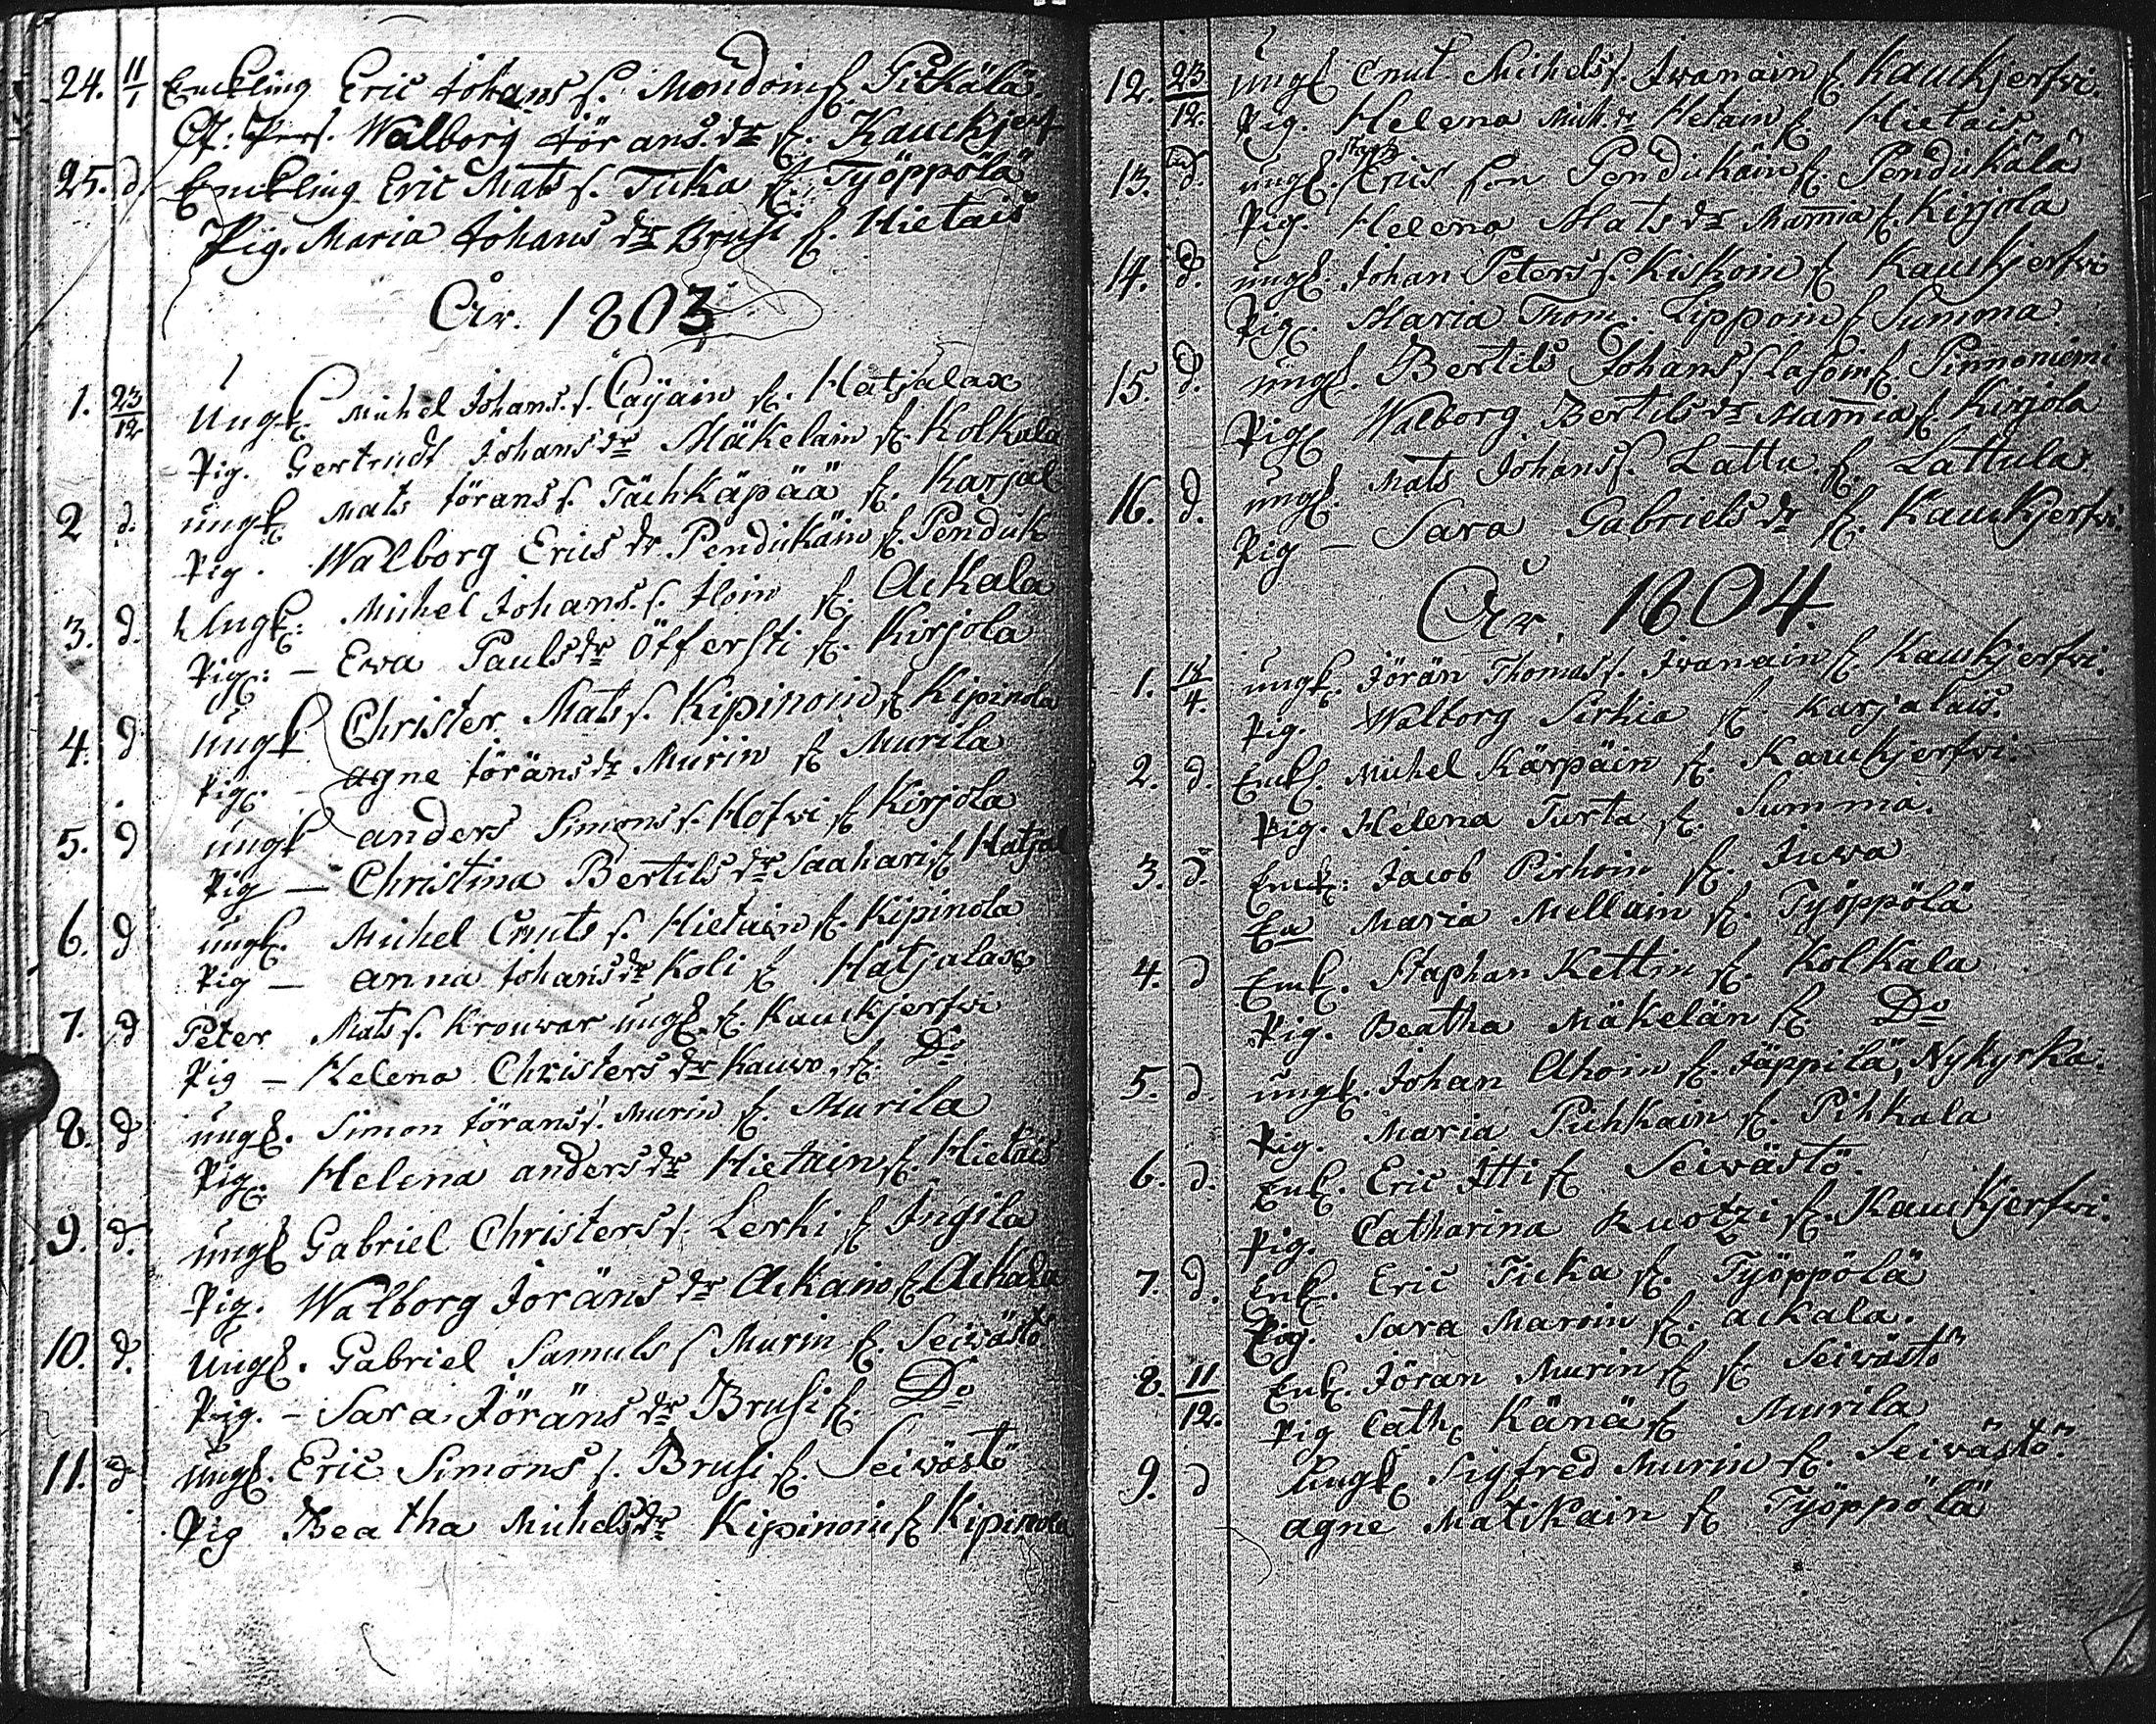 24. 11/1 Enckling Eric Johans s. Mondoin fr. Pitkälä.
Walborg Jörans. dr fr. Kauckjerf
25. d Enckling Eric Mats s. Ticka fr. Työppölä
Pig. Maria Johans dr Brusi fr. Hietais
År. 1803
1. 23/12 Ungk. Michel Johans. s. Cäÿäin fr. Hatjalax
Pig. Gertrudt Johans dr Mäkelain fr. Kolkala
2 d. ungk. Mats Jörans s. Tächkäpää fr. Karjal
Pig. Walborg Erics dr Pendikäin fr. Pendik
3. d. Ungk: Michel Johans. s. Iloin fr. Ackala
Pig: – Ewa Pauls dr Öfversti fr. Kirjola
4. d ungk Christer Mats s. Kipinoin fr Kipinola
Pig. – agne Jöräns dr Murin fr Murila
5. d ungk anders Simons s. Hofwi fr Kirjola
Pig – Christina Bertils dr Saahari fr Hatjal
6. d ungk. Michel Cnuts s. Hietain fr. Kipinola
Pig – anna Johans dr Koli fr Hatjalax
7. d Peter Mats s. Kronwar ungk. fr. Kauckjerfwi
Pig – Helena Christers dr Kauwo, fr. Do
8. d ungk. Simon Jörans s. Murin fr. Murila
Pig. Helena anders dr Hietain fr. Hietais
9. d. ungk Gabriel Christers s. Lerki fr Ingila
Pig. Walborg Jöräns dr Ackain fr Ackala
10. d. Ungk. Gabriel Samuls s Murin fr. Seiwästö
Pig. – Sara Jöräns dr Brusi fr. Do
11. d ungk. Eric Simons s. Brusi fr. Seiwästö
Pig Beatha Michels dr Kipinoin fr Kipinola
12. 23/12. ungk Cnut Michels s. Iwanain fr Kauckjerfwi.
Pig. Helena Mich. dr Hetain fr. Hietais
13. d. ungk. Erics son Pendikäin fr. Pendikälä
Pig. Helena Mats dr Mamia fr. Kirjola
14. d. ungk Johan Peters s. Kiskoin fr Kauckjerfwi
Pig. Maria Thom. Lippoin fr Summa
15. d. ungk. Bertils Johans s Lasoin fr. Pinnoniemi
Pig Walborg Bertils dr Mamia fr Kirjola
16. d. ungk. Mats Johans s. Lattu fr Lattula
Pig – Sara Gabriels dr fr. Kauckjerfwi.
År. 1804.
1. 18/4. ungk. Jörän Thomas s. Iwanain fr Kauckjerfwi.
Pig. Walborg Sirkia fr Karjalais.
2. d. Enkl. Michel Kärpäin fr. Kauckjerfwi.
Pig. Helena Turta fr. Summa.
3. d. Enck: Jacob Pirhoin fr. Juwa
Ea Maria Mellain fr. Työppölä
4. d Enk. Staphan Kettin fr. Kolkala
Pig. Beatha Mäkelän fr. Do
5. d. ungk. Johan Ahoin fr. Jäppilä, Nykyrka.
Pig. Maria Pichkain fr. Pihkala
6. d. Enk. Eric Itti fr Seiwästö.
Pig. Catharina Ruotzi fr. Kauckjerfwi.
7. d. Enk. Eric Ticka fr. Työppölä
Pig. Sara Maroin fr. ackala.
8. 11/12. Enk. Jöran Murin fr fr Seiwästö
Pig Cath. Känä fr Murila
9. d Ungk Sigfred Murin fr. Seiwästö.
agne Matikain fr Työppölä